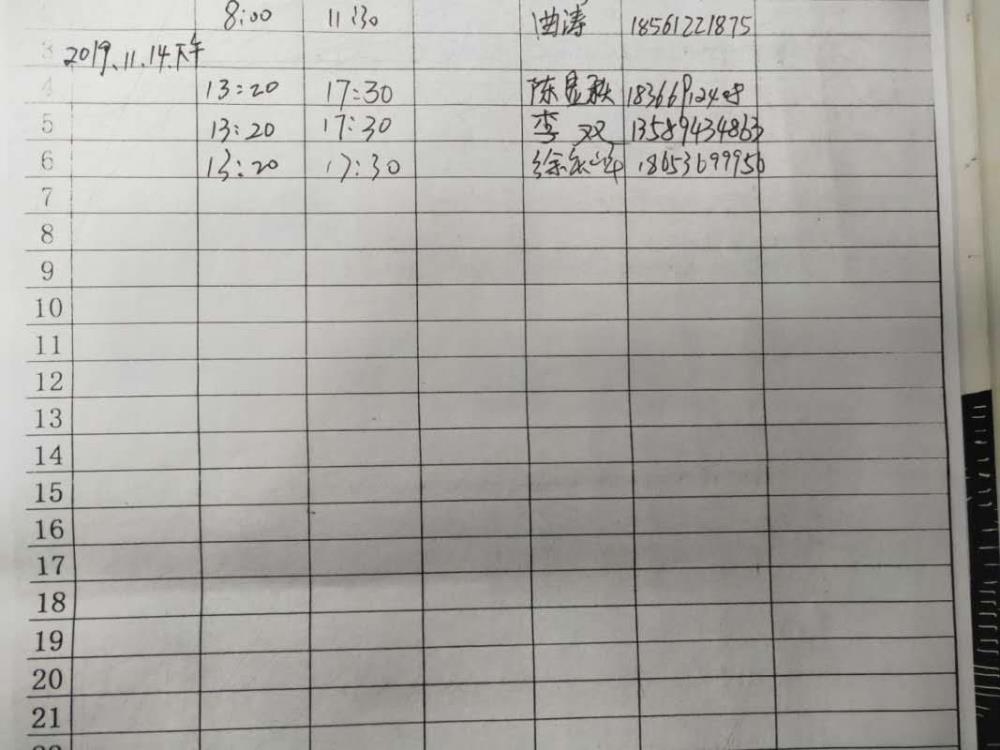 8:00 11:30 曲涛 18561221875
3 2019.11.14.下午
4 13:20 17:30 陈显秋
5 13:20 17:30 李双 13589434863
6 13:20 17:30 18653699956
7
8
9
10
11
12
13
14
15
16
17
18
19
20
21